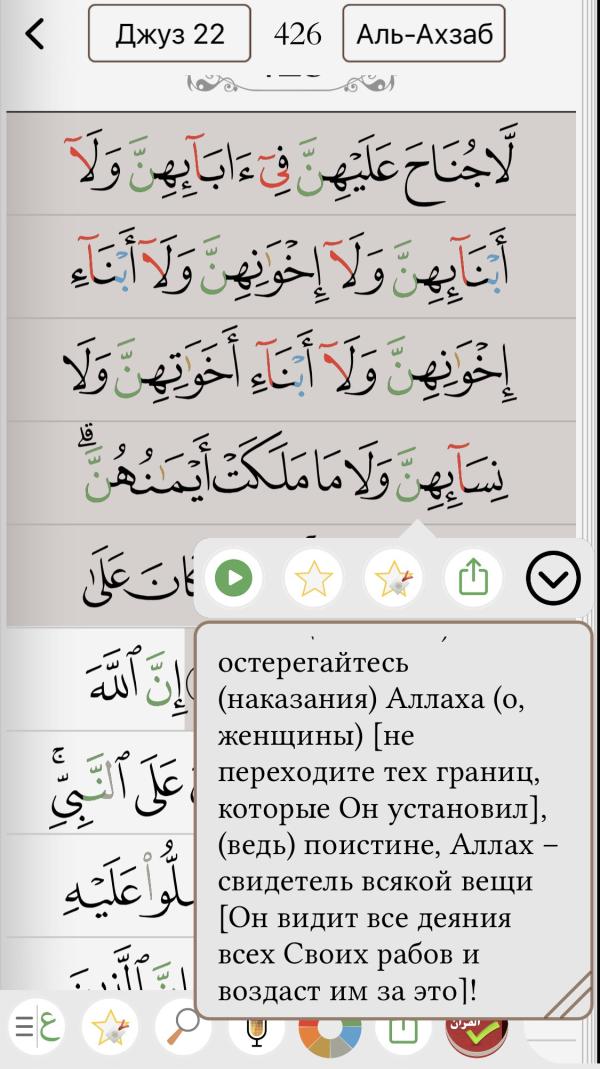 Джуз 22
426
Аль-Ахзаб
لَّا جُنَاحَ عَلَيْهِنَّ فِىٓ ءَابَآئِهِنَّ وَلَآ
أَبْنَآئِهِنَّ وَلَآ إِخْوَٰنِهِنَّ وَلَآ أَبْنَآءِ
إِخْوَٰنِهِنَّ وَلَآ أَبْنَآءِ أَخَوَٰتِهِنَّ وَلَا
نِسَآئِهِنَّ وَلَا مَا مَلَكَتْ أَيْمَـٰنُهُنَّ ۗ
كَانَ عَلَىٰ
إِنَّ ٱللَّهَ
عَلَى ٱلنَّبِىِّ ۚ
عَلَيْهِ
остерегайтесь
(наказания) Аллаха (о,
женщины) [не
переходите тех границ,
которые Он установил],
(ведь) поистине, Аллах –
свидетель всякой вещи
[Он видит все деяния
всех Своих рабов и
воздаст им за это]!
ع
القرآن